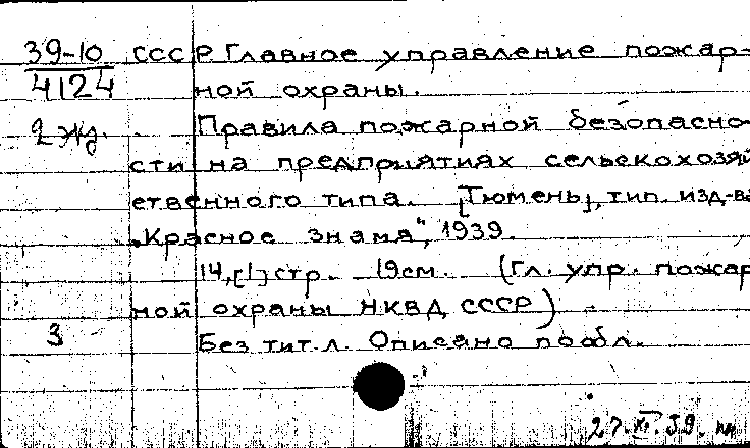 39-10 СССР Главное управление пожар-
4124 ной охраны.
2 экз. Правила пожарной безопасно-
сти на предприятиях сельскохозяй
ственного типа. [Тюмень], тип. изд-ва
„Красное знамя", 1939.
14,[1] стр. 19см. (Гл. упр. пожар
ной охраны НКВД СССР)
3 Без тит.л. Описано по обл.
27.XI.39.